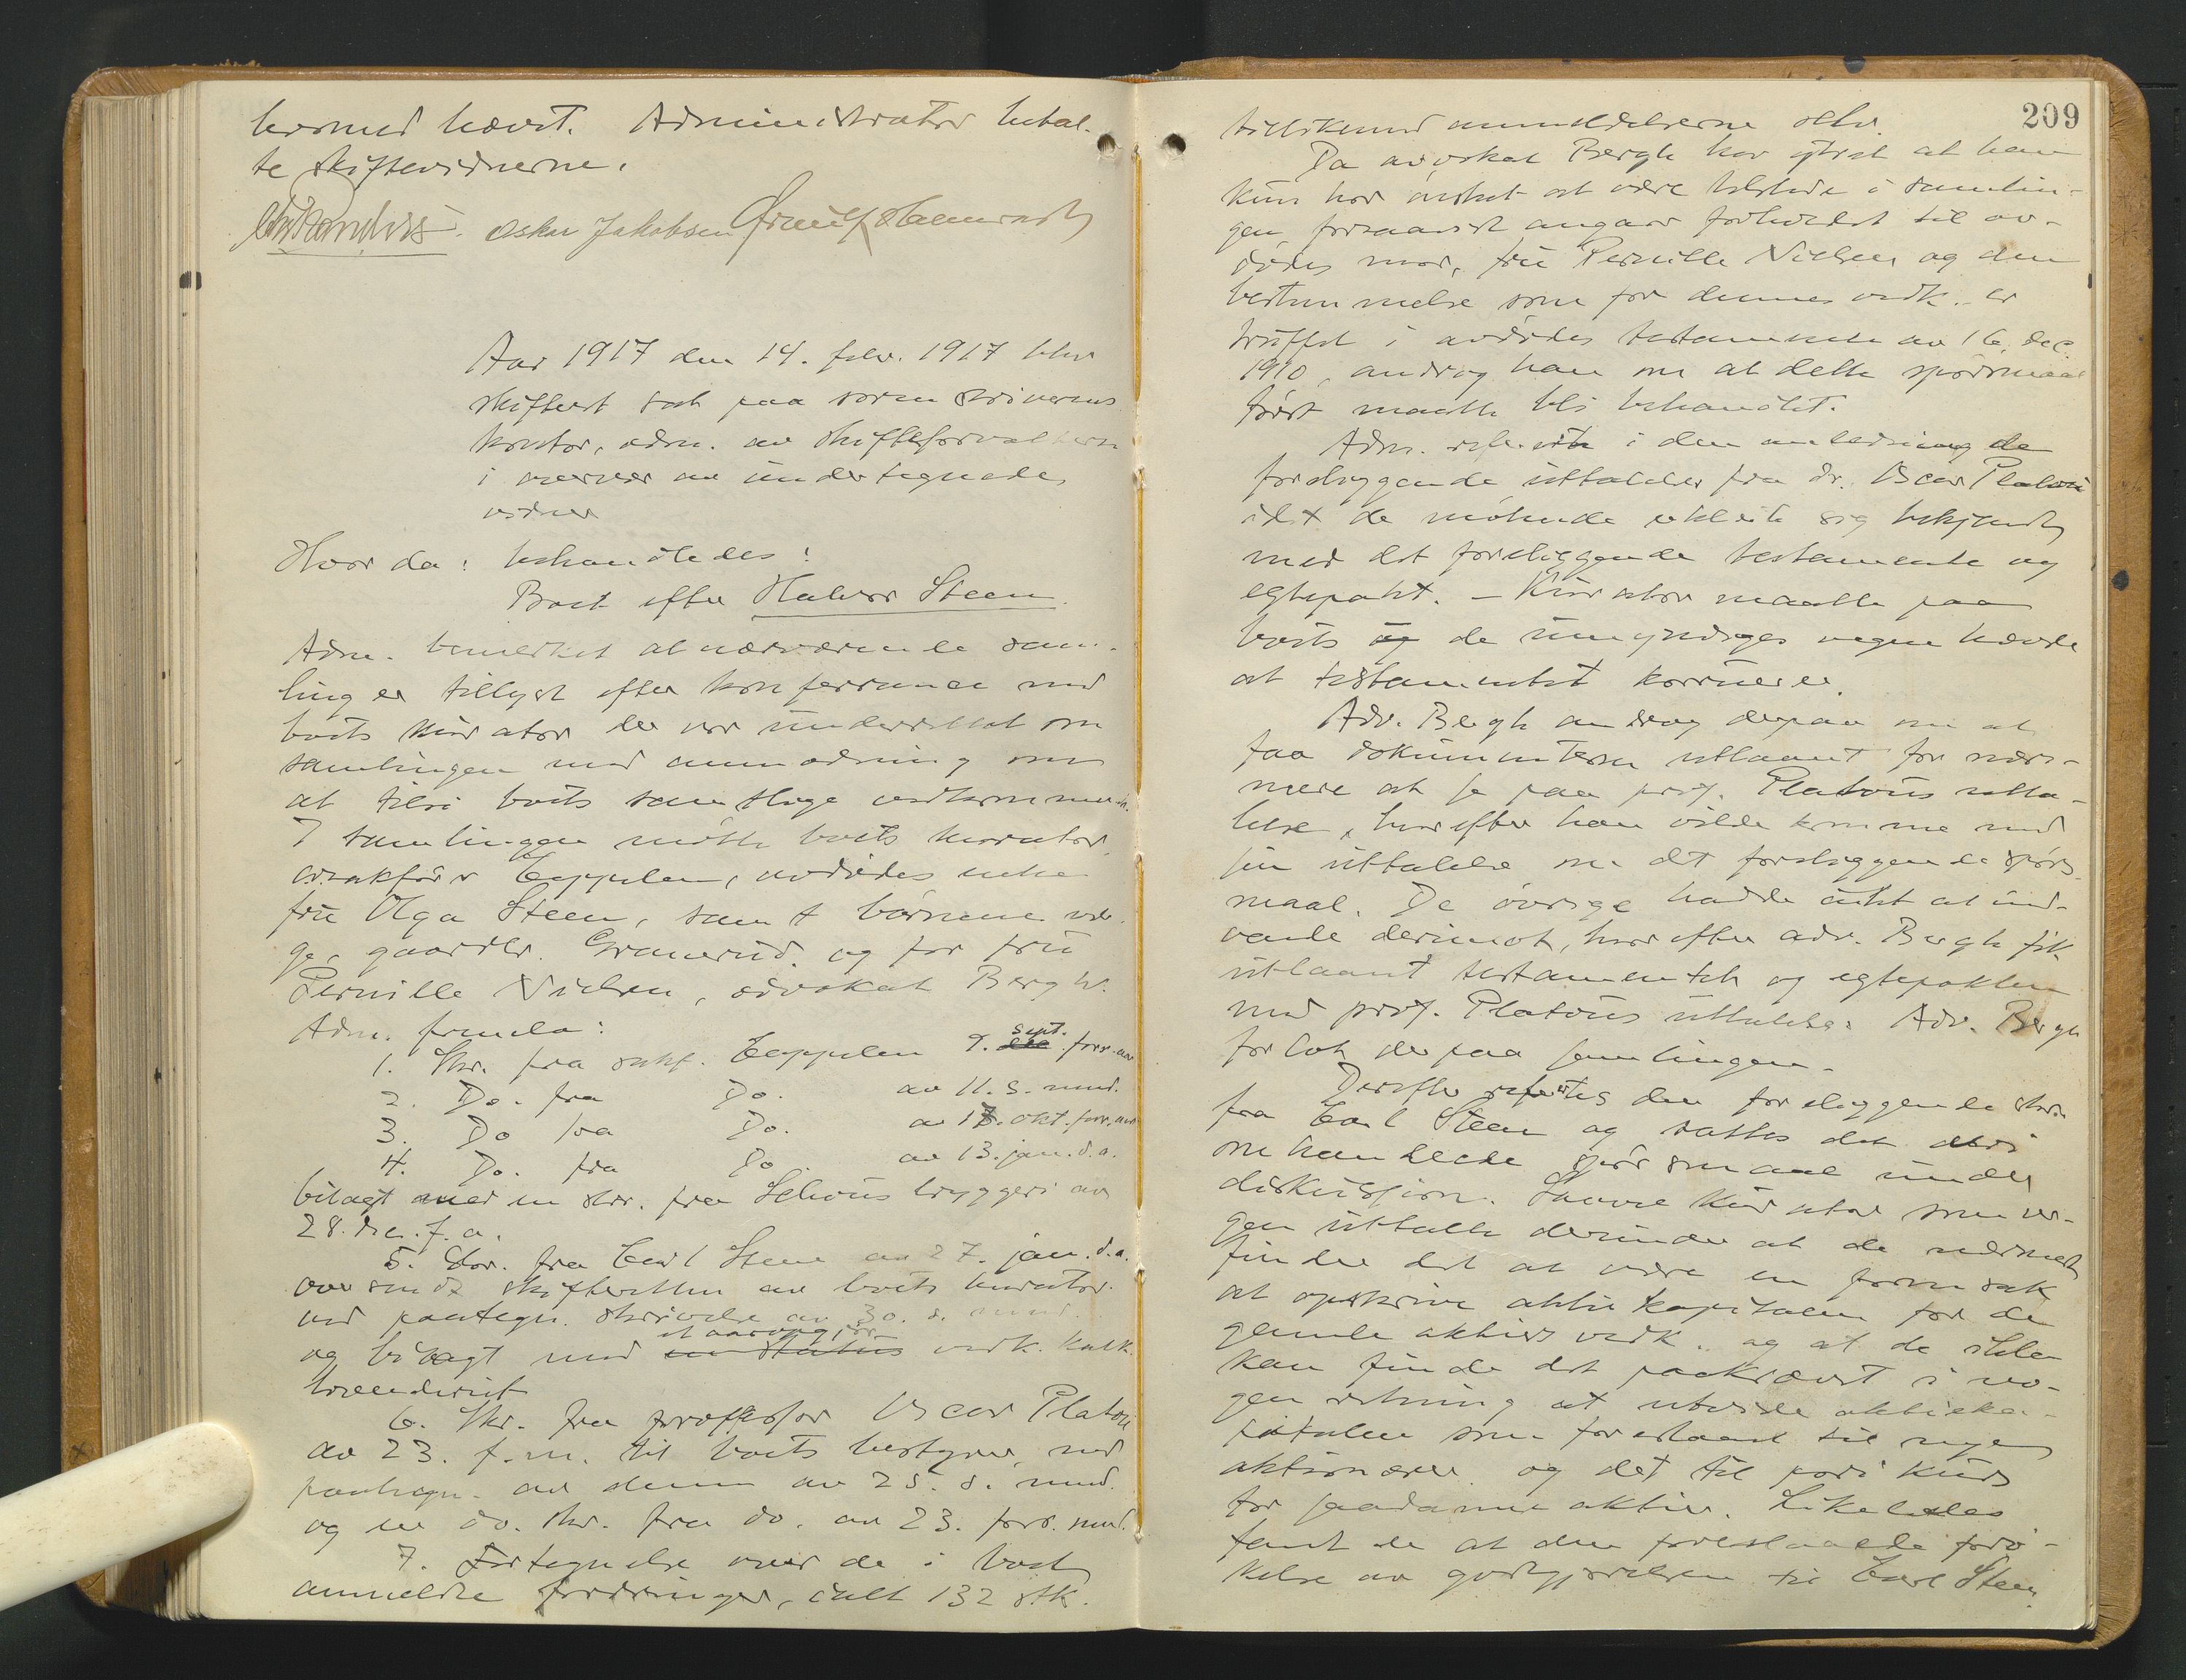 hermed hævet. Administrator betal-
te skiftevidnerne.
Oskar Jakobsen
Aar 1917 den 14. febr. 1917 blev
skifteret sat paa sorenskriverens
kontor, adm. av skifteforvalteren
i overvær av undertegnede
vidner
Hvor da: behandledes:
Boet efter Halvor Steen.
Adm. bemerket at nærværende sam-
ling er tillyst efter konferranse med
boets kurator der var underrettet om
samlingen med anmodning om
at tilsi boets samtlige vedkommende.
I samlingen møtte boets kurator,
o.r.sakfører Eppelen, avdødes enke
fru Olga Steen, samt børnene ver-
ge, gaardbr. Granerud og for fru
Pernille Nielsen, advokat Bergh.
Adm. fremla:
1. Skr. fra sakf. Eppelen 9. sept. forr. aar
2. Do. fra Do. av 11. s. mnd.
3. Do fra Do. av 17. okt. forr. aar
4. Do. fra Do av 13. jan. d.a.
bilagt med en skr. fra Schous bryggeri av
28. dec. f. a.
5. Skr. fra Carl Steen av 27. jan. d.a.
oversendt skifteretten av boets kurator
ved paategn. skrivelse av 30. s. mnd.
og bilagt med en status et aarsopgjør vedk. kalk-
brænderiet
6. Skr. fra professor Oscar Platou
av 23. f.m. til boets bestyrer med
paategn. av denne av 25. s. mnd.
og en do. skr. fra do. av 23. forr. mnd.
7. Fortegnelse over de i boet
anmeldte fordringer, ialt 132 stk.
209
tillikemed anmeldelserne selv.
Da advokat Bergh har ytret at han
kun har ønsket at være tilstede i samlin-
gen forsaavidt angaar forholdet til av-
dødes mor, fru Pernille Nielsen og den
bestemmelse som for dennes vedk. er
truffet i avdødes testamente av 16. dec.
1910, androg han om at dette spørsmaal
først maatte bli behandlet.
Adm. refererte i den anledning de
foreliggende uttalelser fra dr. Oscar Platou
idet de møtende erklærte sig bekjendt
med det foreliggende testamente og
egtepakt. - Kurator maatte paa
boets og de umyndiges vegne hævde
at testamentet
Adv. Bergh androg derpaa om at
faa dokumenterne utlaant for nær-
mere at se paa prof. Platous utta-
lelse, hvorefter han vilde komme med
sin uttalelse om det foreliggende spørs-
maal. De øvrige hadde intet at ind-
vende derimot, hvorefter adv. Bergh fik
utlaant testamentet og egtepakten
med prof. Platous uttalelse. Adv. Bergh
forlot derpaa samlingen.
Derefter refertes den foreliggende skr.
fra Carl Steen og sattes det deri
omhandlede spørsmaal under
diskussion. Saavel kurator som ver-
gen uttalte derunder at de nærmest
finder det at være en formsak
at opskrive aktiekapitalen for de
gamle aktiers vedk. og at de ikke
kan finde det paakrævet i no-
gen retning at utvide aktieka-
pitalen som foreslaaet til nye
aktionærer og det til pari kurs
for saadanne aktier. Likeledes
fandt de at den foreslaaede forø-
kelse av godtgjørelsen til Carl Steen